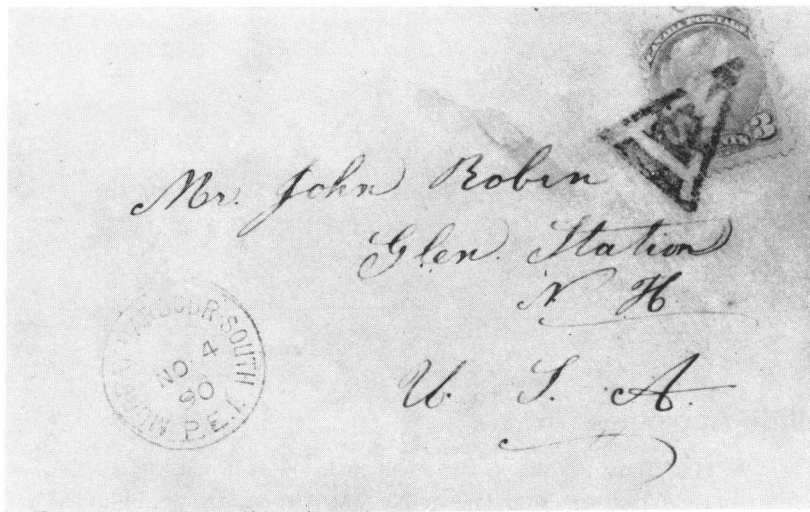 CANADA POSTAGE
3
Mr. John Robin
Glen. Station
N. H.
U. S. A.
MURRAY HARBOUR SOUTH
NO 4
90
P.E.I.